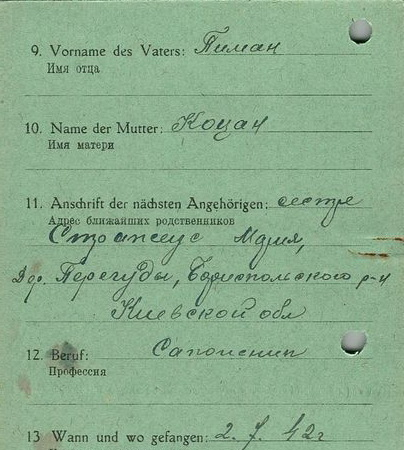 9. Vorname des Vaters: Тиман
Имя отца
10. Name der Mutter: Коцан
Имя матери
11. Anschrift der nächsten Angehörigen: сестре
Адрес ближайших родственников
Мария,
Дер. Перегуды, Бориспольского р-н
Киевской обл
12. Beruf:
Профессия
13 Wann und wo gefangen: 2. 7. 42г